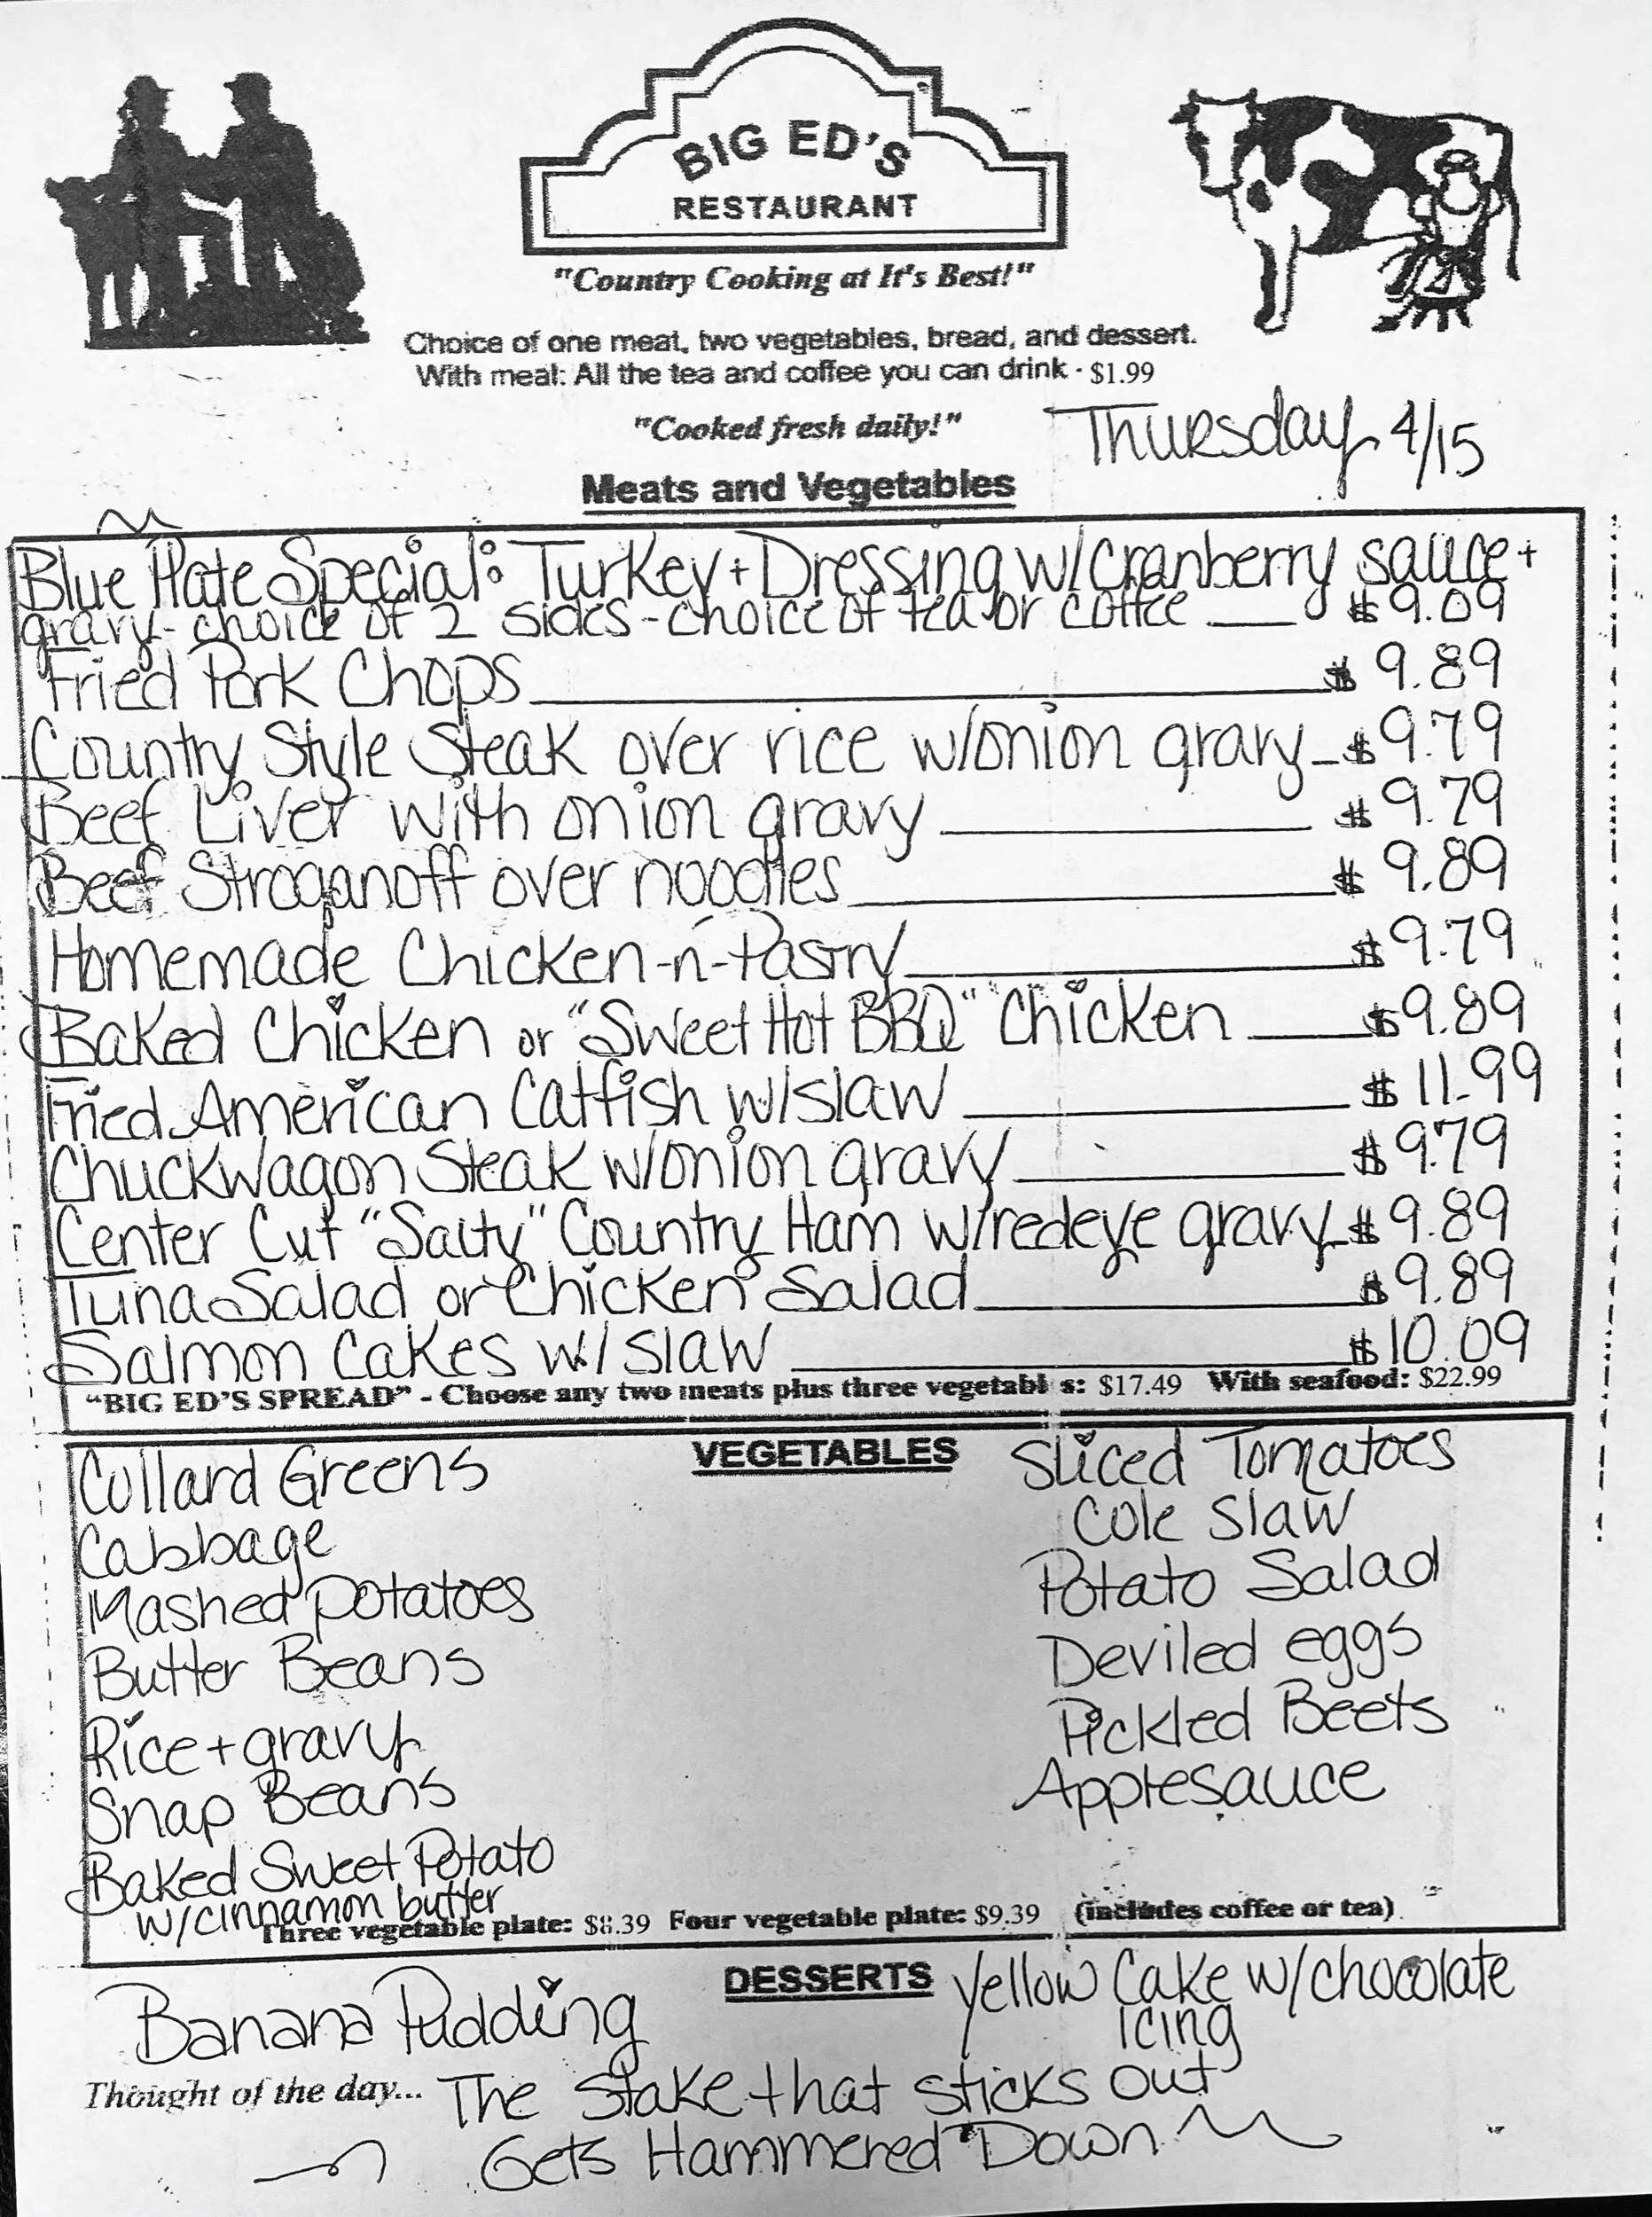 BIG ED'S
RESTAURANT
"Country Cooking at It's Best!"
Choice of one meat, two vegetables, bread, and dessert.
With meal: All the tea and coffee you can drink - $1.99
"Cooked fresh daily!"
Thursday 4/15
Meats and Vegetables
Blue Plate Special: Turkey + Dressing w/cranberry sauce +
gravy - choice of 2 sides - choice of tea or coffee $9.09
Fried Pork Chops $9.89
Country Style Steak over rice w/onion gravy $9.79
Beef Liver with onion gravy $9.79
Beef Stroganoff over noodles $9.89
Homemade Chicken-n-Pastry $9.79
Baked Chicken or "Sweet Hot BBQ" Chicken $9.89
Fried American Catfish w/slaw $11.99
Chuckwagon Steak w/onion gravy $9.79
Center Cut "Salty" Country Ham w/redeye gravy $9.89
Tuna Salad or Chicken Salad $9.89
Salmon Cakes w/slaw $10.09
"BIG ED'S SPREAD" - Choose any two meats plus three vegetables: $17.49 With seafood: $22.99
VEGETABLES
Collard Greens
Cabbage
Mashed potatoes
Butter Beans
Rice + gravy
Snap Beans
Baked Sweet Potato
w/cinnamon butter
Sliced Tomatoes
Cole Slaw
Potato Salad
Deviled eggs
Pickled Beets
Applesauce
Three vegetable plate: $8.39 Four vegetable plate: $9.39 (includes coffee or tea)
DESSERTS
Banana Pudding
Yellow Cake w/chocolate
icing
Thought of the day... The Stake that sticks out
Gets Hammered Down